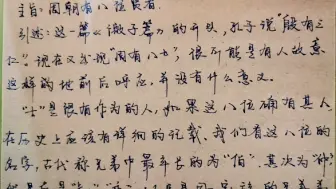 主旨：周朝有八位贤者。
引述：这一篇《微子篇》的开头，孔子说“殷有三
仁”。现在又出现“周有八士”，很可能是有人故意
这样的地前后呼应，并没有什么意义。
“士”是很有作为的人，如果这八位确有其人
在历史上应该有详细的记载。我们看这八位的
名字，古代称兄弟中最年长的为“伯”，其次为“仲”